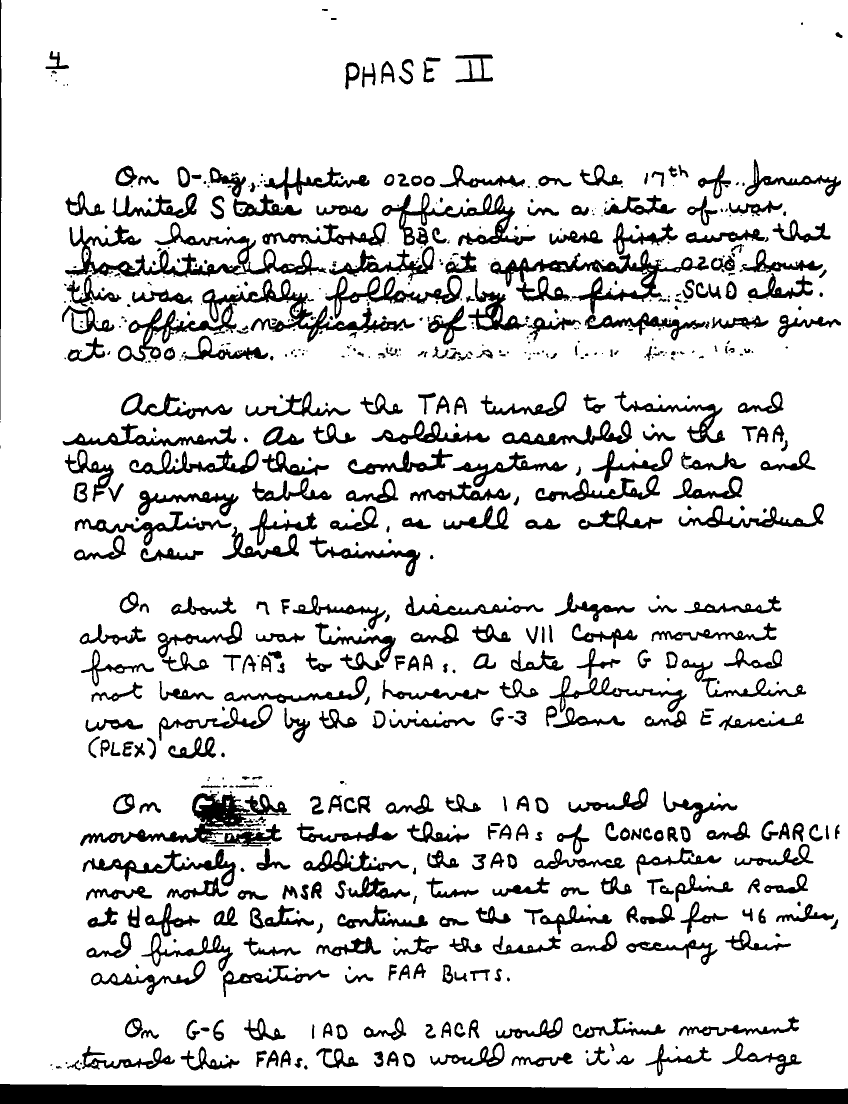 4
PHASE II
On D-Day, effective 0200 hours on the 17th of January
the United States was officially in a state of war.
Units having monitored BBC radio were first aware that
hostilities had started at approximately 0200 hours,
this was quickly followed by the first SCUD alert.
The offical notification of the air campaign was given
at 0500 hours.
Actions within the TAA turned to training and
sustainment. As the soldiers assembled in the TAA,
they calibrated their combat systems, fired tank and
BFV gunnery tables and mortars, conducted land
navigation, first aid, as well as other individual
and crew level training.
On about 7 February, discussion began in earnest
about ground war timing and the VII Corps movement
from the TAA's to the FAAs. A date for G Day had
not been announced, however the following timeline
was provided by the Division G-3 Plans and Exercise
(PLEX) cell.
On the 2ACR and the 1AD would begin
movement west towards their FAAs of CONCORD and GARCIA
respectively. In addition, the 3AD advance parties would
move north on MSR Sultan, turn west on the Tapline Road
at Hafar Al Batin, continue on the Tapline Road for 46 miles,
and finally turn north into the desert and occupy their
assigned position in FAA BUTTS.
On G-6 the 1AD and 2ACR would continue movement
towards their FAAs. The 3AD would move it's first large